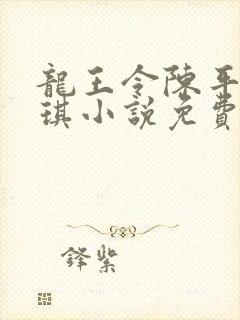 龍王令陳平
琪小說免費
鋒紫